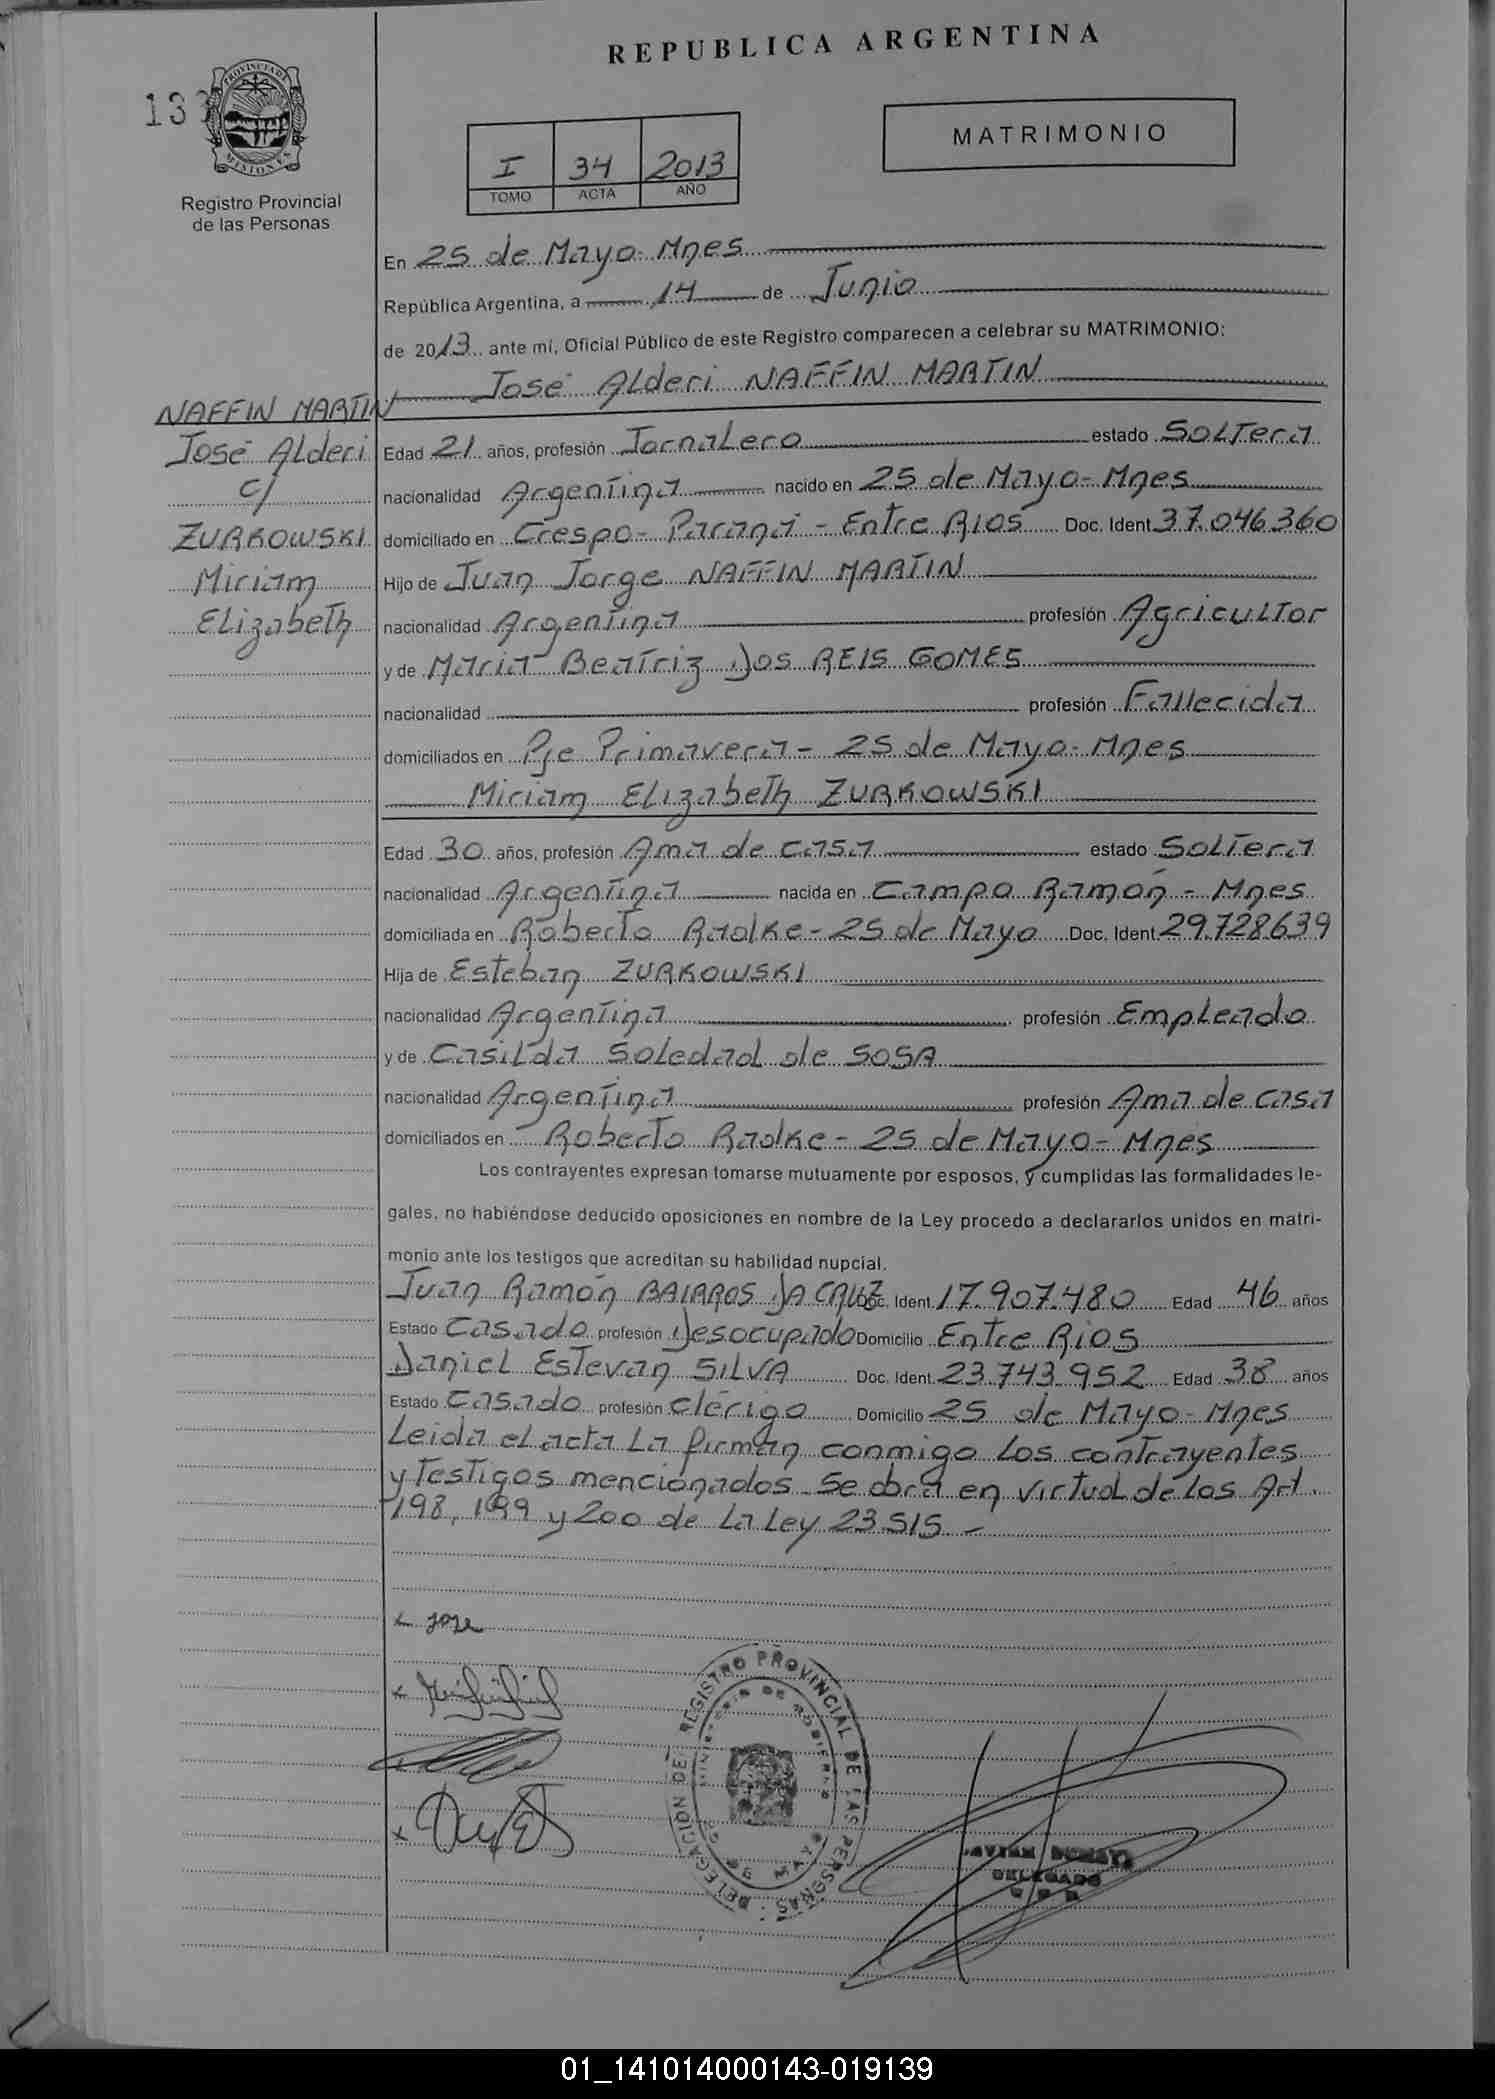 REPUBLICA ARGENTINA
13
PROVINCIA DE
MISIONES
Registro Provincial
de las Personas
MATRIMONIO
I 34 2013
TOMO ACTA AÑO
En 25 de Mayo- Mnes
República Argentina, a 14 de Junio
de 2013 ante mí, Oficial Público de este Registro comparecen a celebrar su MATRIMONIO:
José Alderi NAFFIN MARTIN
NAFFIN MARTIN
José Alderi
c/
ZURKOWSKI
Miriam
Elizabeth
Edad 21 años, profesión Jornalero estado Soltera
nacionalidad Argentina nacido en 25 de Mayo- Mnes
domiciliado en Crespo- Paraná - Entre Rios Doc. Ident 37.046.360
Hijo de Juan Jorge NAFFIN MARTIN
nacionalidad Argentina profesión Agricultor
y de Maria Beatriz Dos REIS GOMES
nacionalidad profesión Fallecida
domiciliados en Pje Primavera- 25 de Mayo- Mnes
Miriam Elizabeth ZURKOWSKI
Edad 30 años, profesión Ama de casa estado Soltera
nacionalidad Argentina nacida en Campo Ramón - Mnes
domiciliada en Roberto Radke- 25 de Mayo Doc. Ident 29.728.639
Hija de Esteban ZURKOWSKI
nacionalidad Argentina profesión Empleado
y de Casilda Soledad de SOSA
nacionalidad Argentina profesión Ama de casa
domiciliados en Roberto Radke- 25 de Mayo- Mnes
Los contrayentes expresan tomarse mutuamente por esposos, y cumplidas las formalidades le-
gales, no habiéndose deducido oposiciones en nombre de la Ley procedo a declararlos unidos en matri-
monio ante los testigos que acreditan su habilidad nupcial.
Juan Ramón BAIRROS DA CRUZ Doc. Ident. 17.907.480 Edad 46 años
Estado Casado profesión Desocupado Domicilio Entre Rios
Daniel Estevan SILVA Doc. Ident. 23.743.952 Edad 38 años
Estado Casado profesión Clérigo Domicilio 25 de Mayo- Mnes
Leida el acta la firman conmigo los contrayentes
y testigos mencionados. Se obra en virtud de los Art.
198, 199 y 200 de la Ley 23.515 -
x jose
DELEGACION DEL REGISTRO PROVINCIAL DE LAS PERSONAS
MINISTERIO DE GOBIERNO
DE MAYO
DELEGADO
01_141014000143-019139